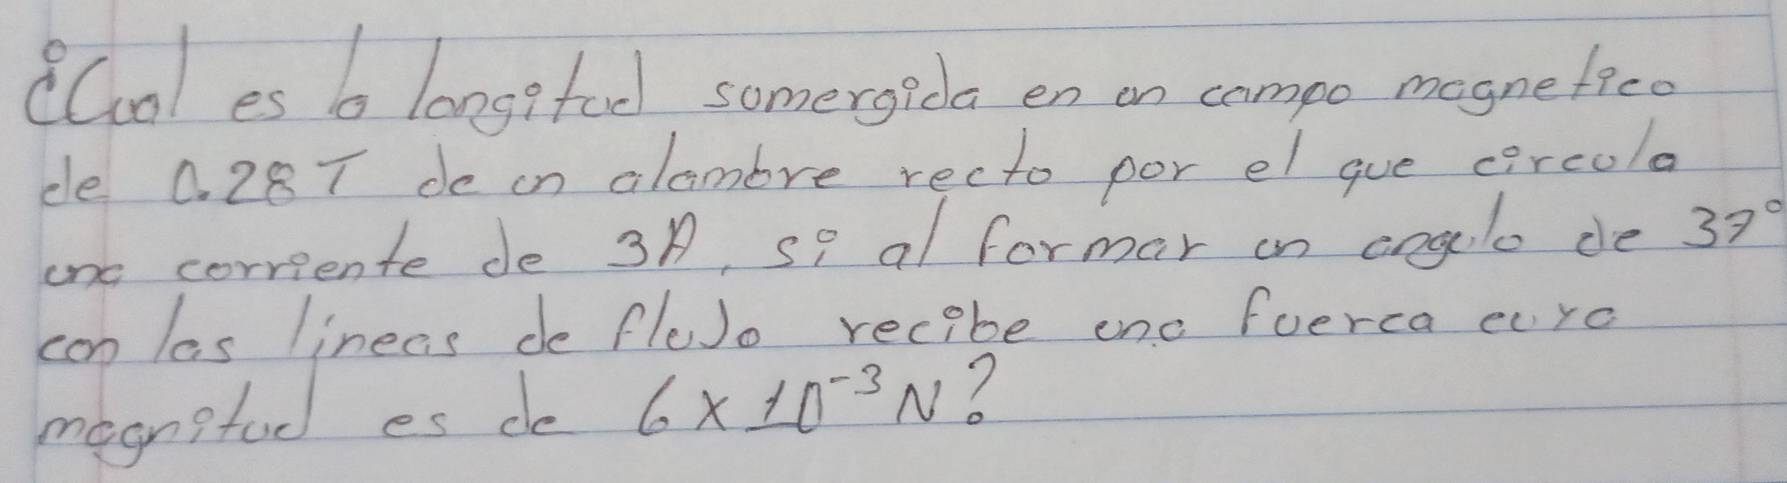 ¿Cual es la longitud sumergida en un campo magnetico
de 0.28 T de un alambre recto por el que circula
una corriente de 3A, si al formar un angulo de 37°
con las lineas de flujo recibe una fuerca cuya
magnitud es de 6 x 10⁻³ N?